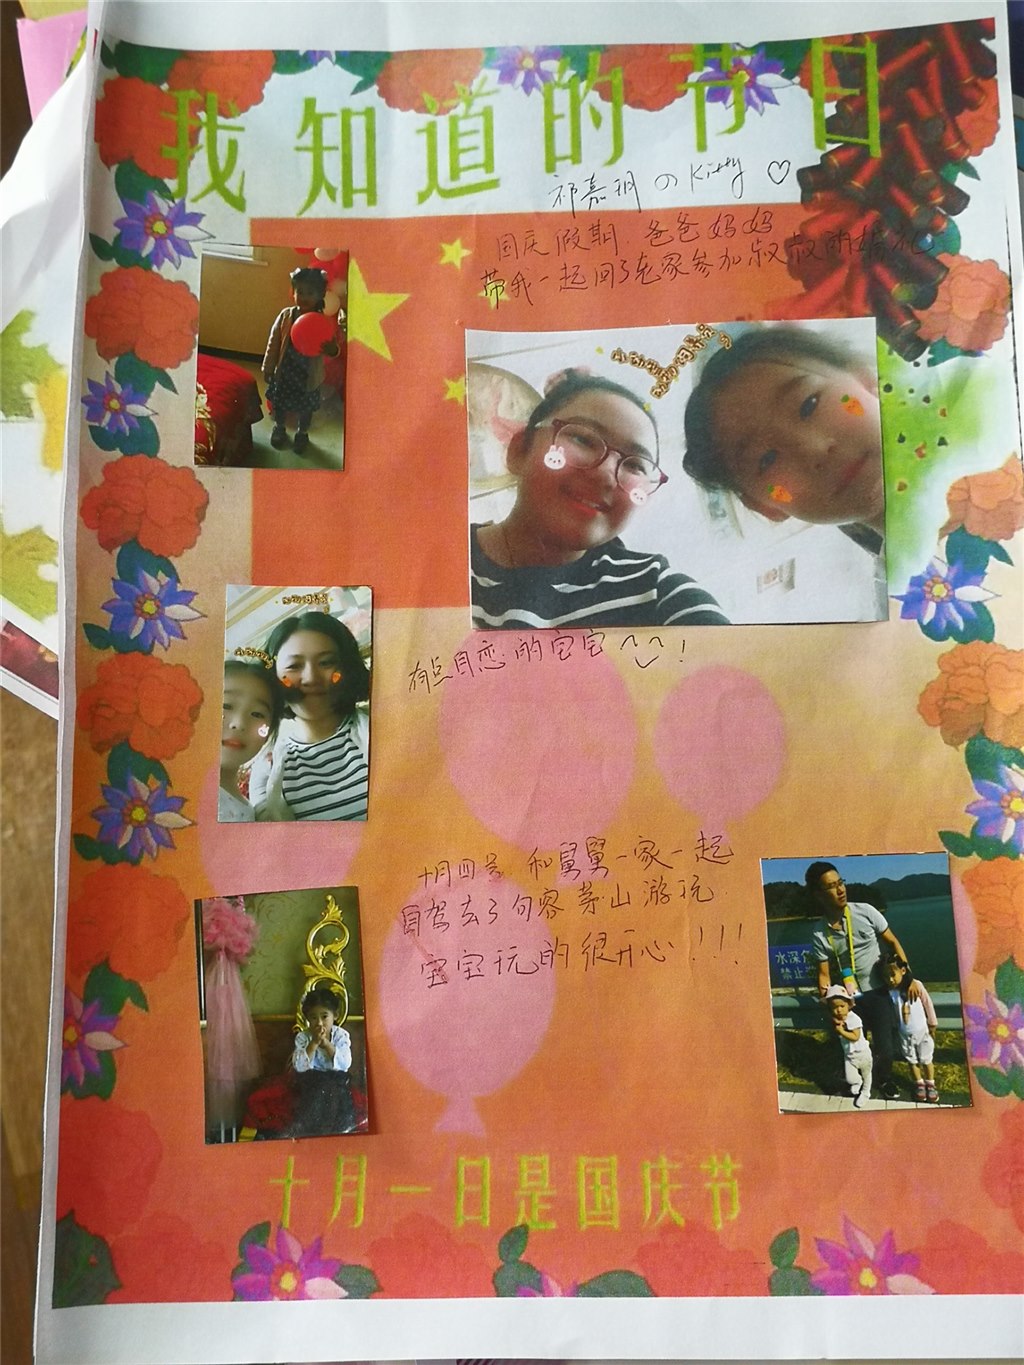 我知道的节日
祁嘉玥の Kitty ♡
国庆假期 爸爸妈妈
带我一起回了老家参加叔叔的婚礼
有点自恋的宝宝 ^_^！
十月四号 和舅舅一家一起
自驾去了句容茅山游玩
宝宝玩的很开心！！！
水深
禁止
十月一日是国庆节